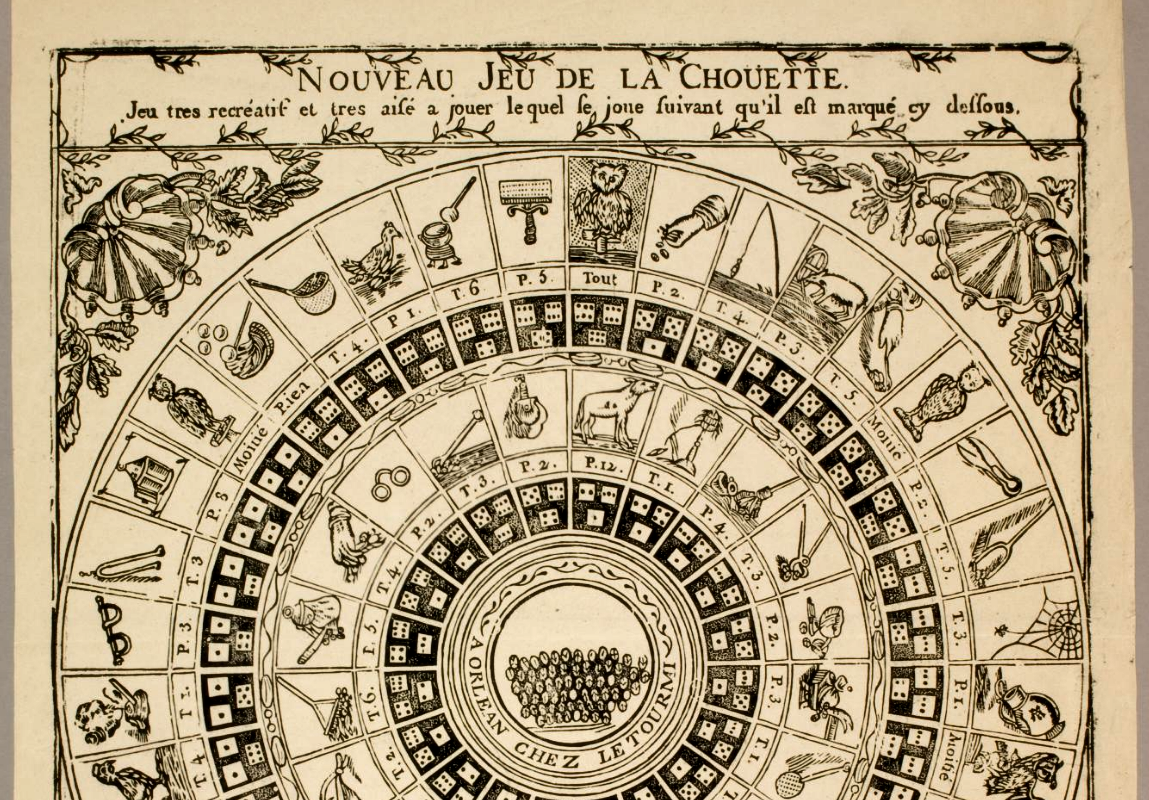 NOUVEAU JEU DE LA CHOUETTE.
Jeu tres recréatif et tres aisé a jouer lequel se joue suivant qu'il est marqué cy dessous.
Tout
P. 2.
T. 4.
P. 3.
T. 5.
Moitié
P. 2.
T. 5.
T. 3
P. 1.
Moitié
T. 4
T 1.
P. 3.
T. 3
P. 8
Moitié
P. 1ea
T. 4.
P 1.
T. 6
P. 5.
P. 12.
T. 1
P. 4.
T. 3
P. 2.
P. 3
T. 1.
T. 2.
T 6.
T. 5.
T. 4.
P. 2.
T. 3.
P. 2.
A ORLEAN CHEZ LETOURMI